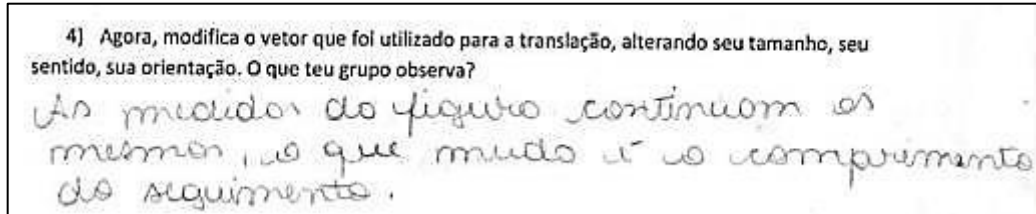 4) Agora, modifica o vetor que foi utilizado para a translação, alterando seu tamanho, seu
sentido, sua orientação. O que teu grupo observa?
As medidas da figura continuam as
mesmas, o que muda é o comprimento
do seguimento.